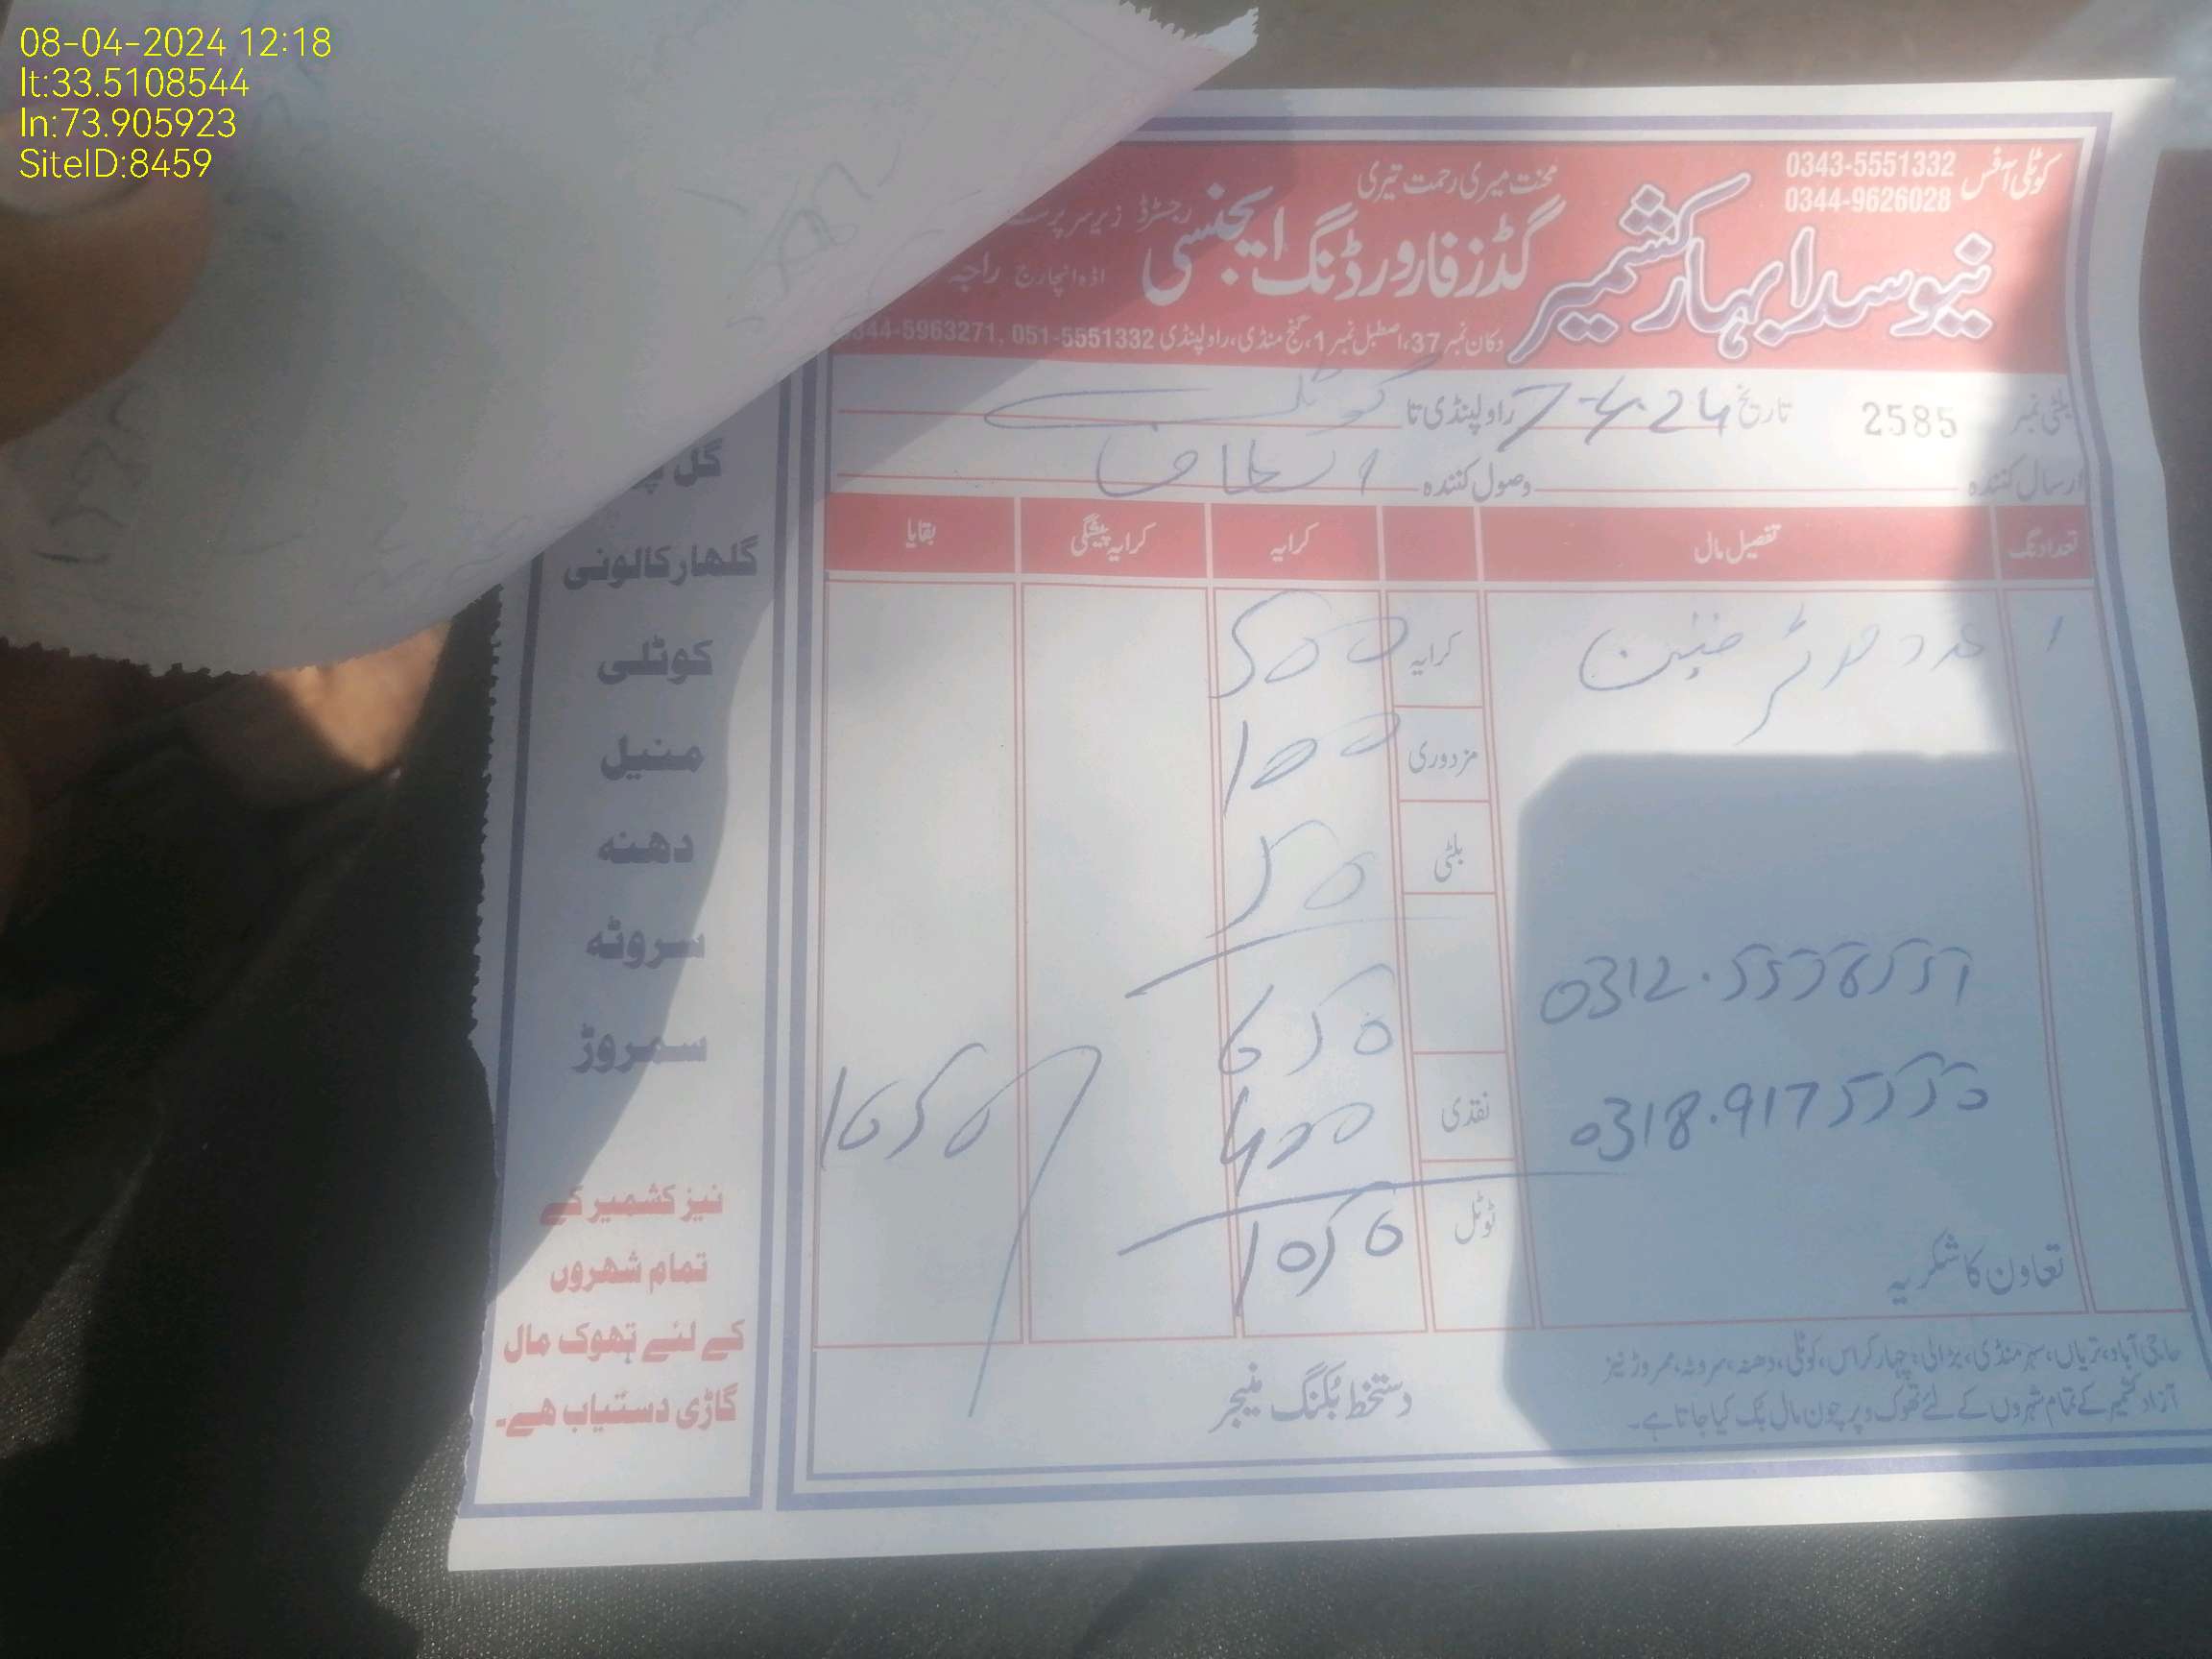 08-04-2024 12:18
lt:33.5108544
ln:73.905923
SiteID:8459
کوٹلی آفس 0343-5551332
0344-9626028
محنت میری رحمت تیری
نیو سدا بہار کشمیر گڈز فارورڈنگ ایجنسی
رجسٹرڈ زیر سرپرست
اڈہ انچارج راجہ
دکان نمبر 37، اصطبل نمبر 1، گنج منڈی، راولپنڈی 051-5551332 ,344-5963271
بلٹی نمبر 2585 تاریخ 7-4-24 راولپنڈی تا کوٹلی
ارسال کنندہ وصول کنندہ
تعداد نگ تفصیل مال کرایہ کرایہ پیشگی بقایا
1 عدد موٹر کرایہ 500
مزدوری 100
بلٹی 50
650
0318.9175553 نقدی 400
ٹوٹل 1050
1050
تعاون کا شکریہ
دستخط بکنگ منیجر
حاجی آباد، تریاں، سہر منڈی، بڑالی، چہار کراس، کوٹلی، دھنہ، سروٹہ، سمروڑ نیز
آزاد کشمیر کے تمام شہروں کے لئے تھوک و پرچون مال بک کیا جاتا ہے۔
گل
گلھار کالونی
کوٹلی
منیل
دھنہ
سروٹہ
سمروڑ
نیز کشمیر کے
تمام شھروں
کے لئے تھوک مال
گاڑی دستیاب ھے۔